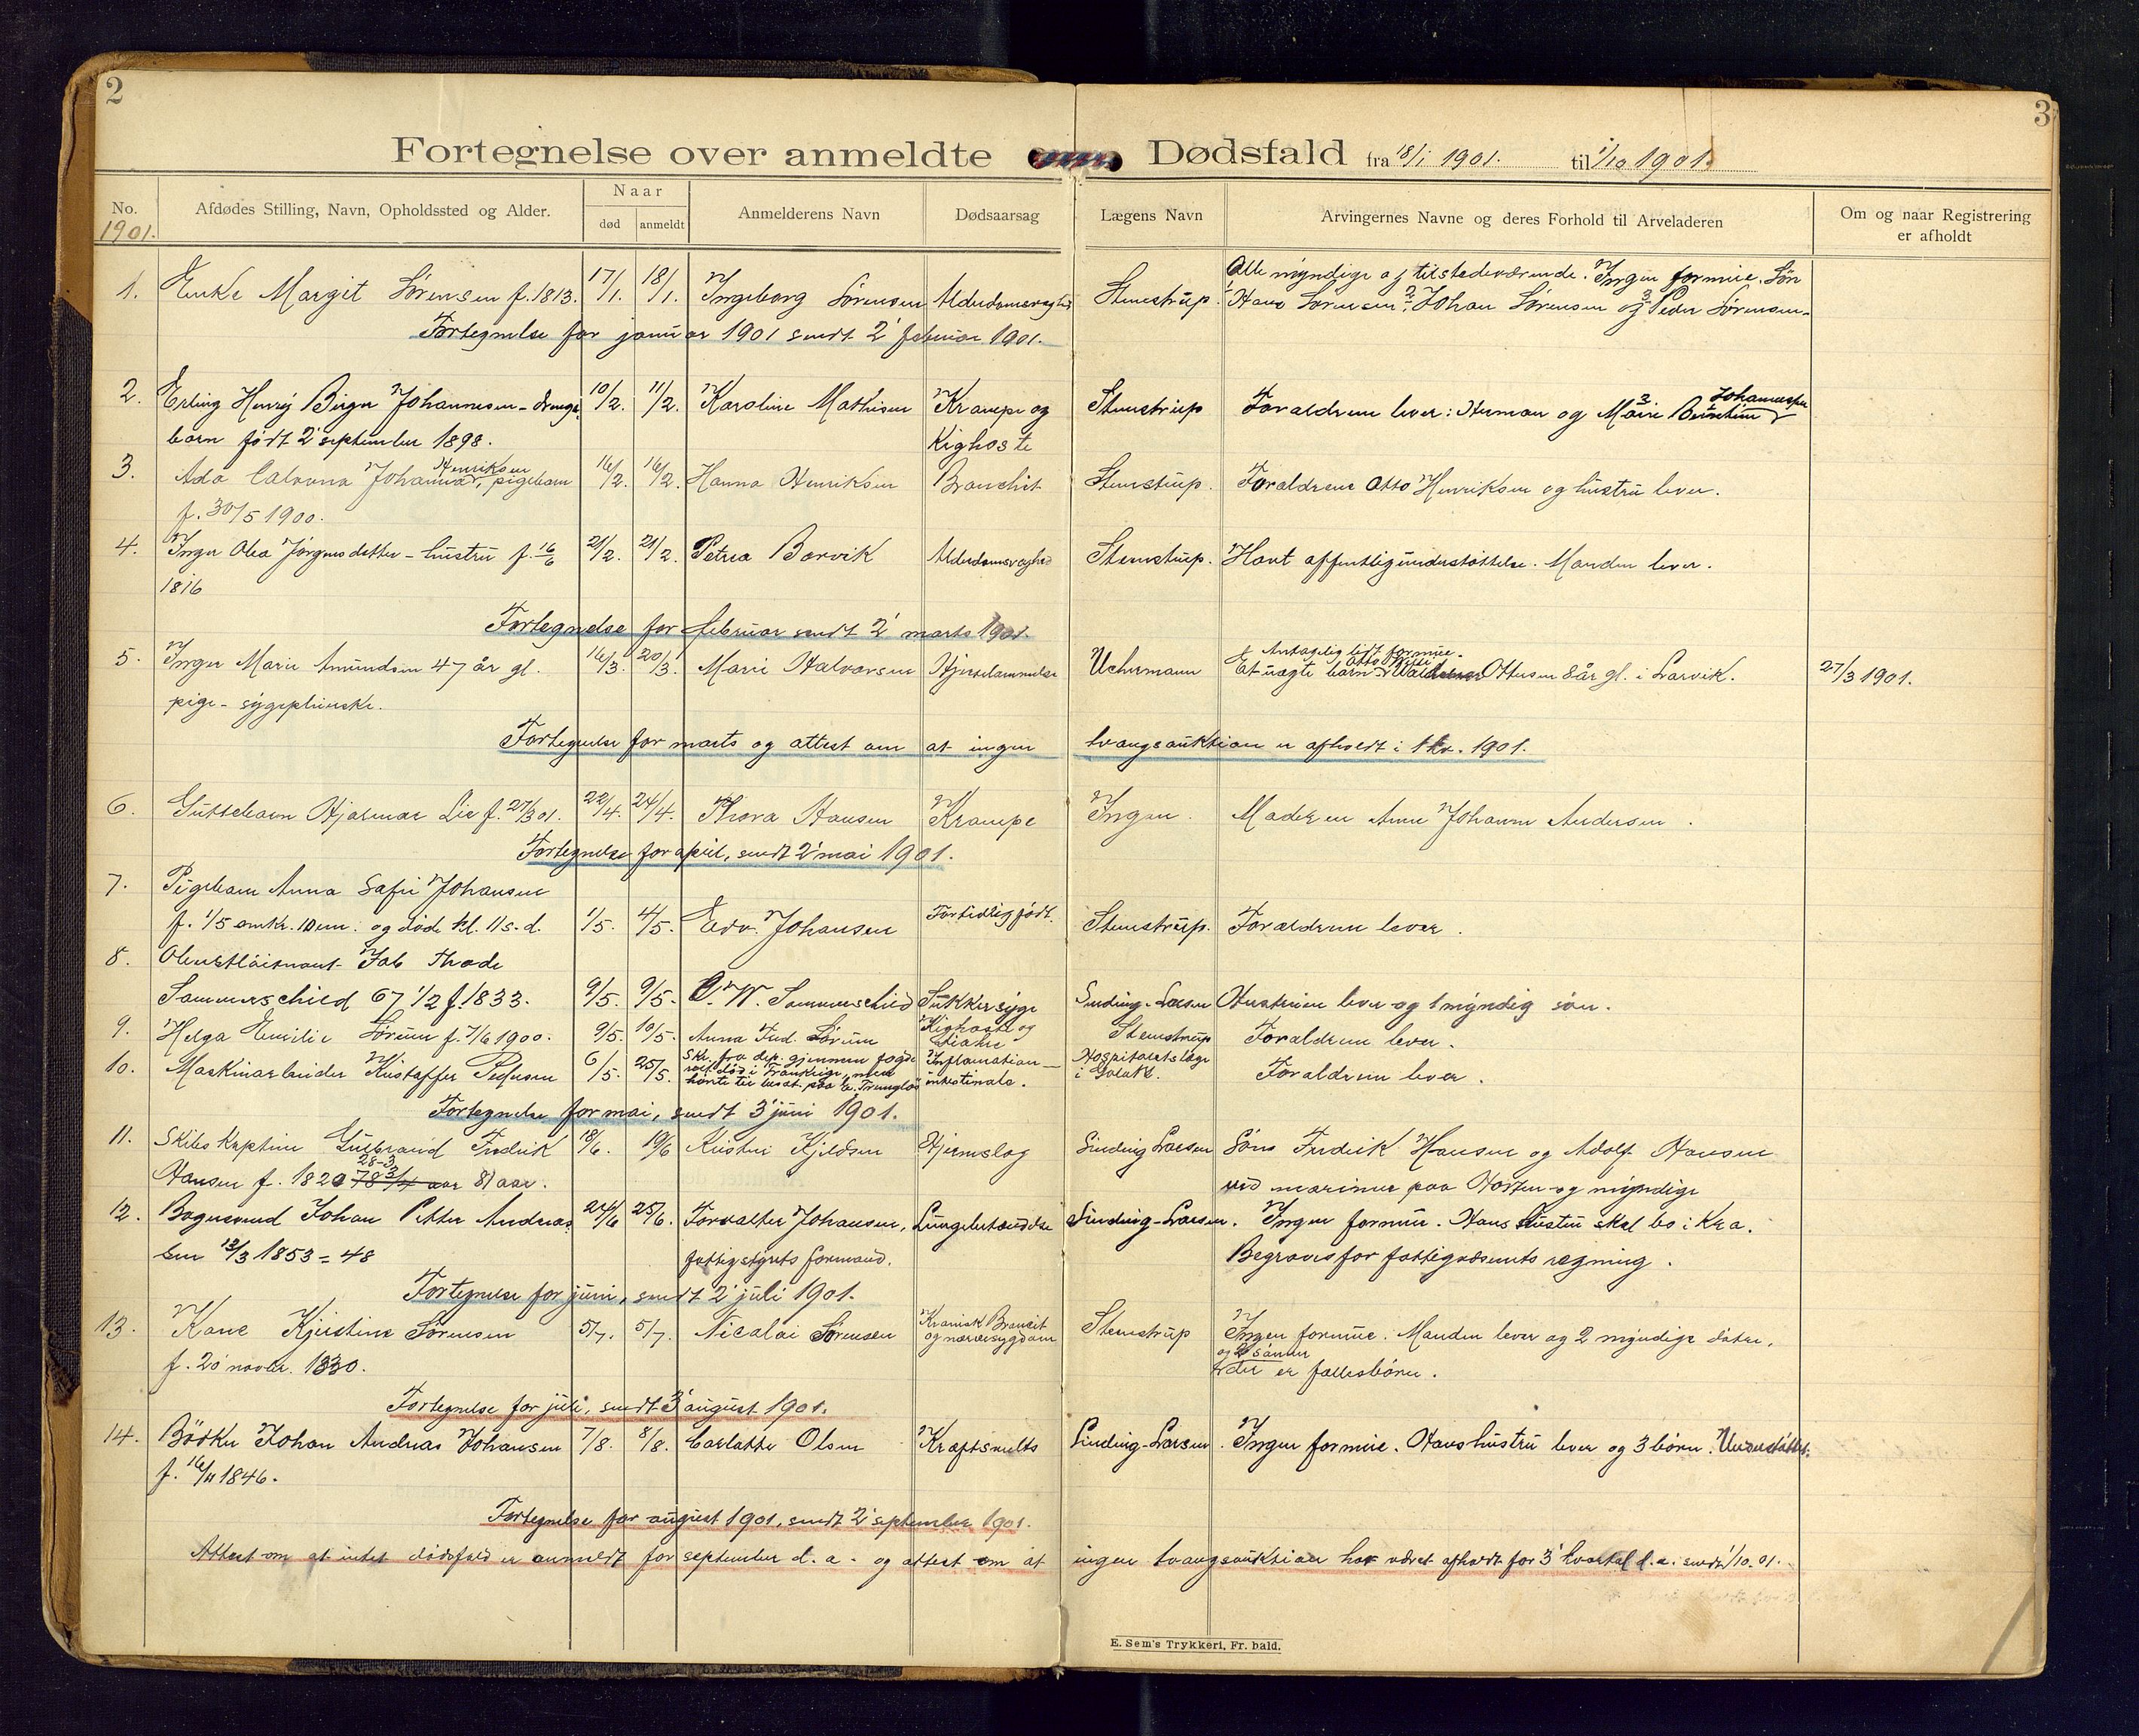 2
3
Fortegnelse over anmeldte Dødsfald fra 18/1 1901. til 1/10 1901.
No.
1901.
Afdødes Stilling, Navn, Opholdssted og Alder.
Naar
død
anmeldt
Anmelderens Navn
Dødsaarsag
Lægens Navn
Arvingernes Navne og deres Forhold til Arveladeren
Om og naar Registrering
er afholdt
1. Enke Margit Sørensen f. 1813. 17/1. 18/1. Ingeborg Sørensen Alderdomssvaghed Stenstrup.
Alle myndige og tilstedeværende. Ingen formue. Søn
1 Hans Sørensen 2 Johan Sørensen og 3 Peder Sørensen.
Fortegnelse for januar 1901 sendt 2' februar 1901.
2. Erling Henry Birger Johannesen - drenge- 10/2. 11/2. Karoline Mathisen Krampe og Stenstrup Forældrene lever: Herman og Marie Johannesen
barn født 2' september 1898. Kighoste
3. Ada Johanna Henriksen, pigebarn 16/2. 16/2. Hanna Henriksen Bronchit Stenstrup. Forældrene Otto Henriksen og hustru lever.
f. 30/5 1900.
4. Inger Olea Jørgensdatter - hustru f. 16/6 21/2. 21/2. Petrea Borvik Alderdomssvaghed Stenstrup. Havt offentlig understøttelse. Manden lever.
1816
Fortegnelse for februar sendt 2' marts 1901.
5. Inger Marie Amundsen 47 år gl. 16/3. 20/3. Marie Halvorsen Hjertelammelse Uchermann
Antagelig lidt formue.
Et uægte barn Ottesen 8 år gl. i Larvik. 27/3 1901.
pige - sygepleierske.
Fortegnelse for marts og attest om at ingen tvangsauktion er afholdt i 1 kv. 1901.
6. Guttebarn Hjalmar Lie f. 27/3 01. 22/4. 24/4. Thora Hansen Krampe Ingen. Moderen Anne Johanne Andersen.
Fortegnelse for april, sendt 2' mai 1901.
7. Pigebarn Anna Sofie Johansen
f. 1/5 omkr. 10 em. og døde kl. 11 s. d. 1/5. 4/5. Edv. Johansen For tidlig født. Stenstrup. Forældrene lever.
8. Oberstløitnant Jab Thode
Sommerschield 67 1/2 f. 1833. 9/5. 9/5. O. W. Sommerschield Sukkersyge Sinding-Larsen Hustruen lever og 1 myndig søn.
9. Helga Emilie Sørum f. 7/6 1900. 9/5. 10/5. Anna Fred. Sørum Kighoste og Stenstrup Forældrene lever.
10. Maskinarbeider Kristoffer Pedersen 6/5. 25/5. Skr. fra dep. gjennem foged Inflamation Hospitalslæge Forældrene lever.
intestinale.
Fortegnelse for mai, sendt 3' juni 1901.
11. Skibskaptein Gulbrand Fredrik 18/6. 19/6 Kristine Kjeldsen Hjerneslag Sinding Larsen Søns Fredrik Hansen og Adolf Hansen
28-3
Hansen f. 1820 78 3/4 aar 81 aar. ved marinen paa Horten og myndige
12. Bogersvend Johan Petter Andreas- 24/6 25/6. Forvalter Johansen, Lungebetændelse Sinding-Larsen. Ingen formue. Hans hustru skal bo i Kra.
sen 12/3 1853 = 48 fattigstyrets formand. Begraves for fattigvæsenets regning.
Fortegnelse for juni, sendt 2' juli 1901.
13. Kone Kjerstine Sørensen 5/7. 5/7. Nicolai Sørensen Kronisk Broncit Stenstrup Ingen formue. Manden lever og 2 myndige døtre.
og nervesygdom og 2 sønner
f. 20' novbr. 1830. der er fællesbørn.
Fortegnelse for juli, sendt 3' august 1901.
14. Bødker Johan Andreas Johansen 7/8. 8/8. Carlotte Olsen Kræftsvulst Sinding-Larsen. Ingen formue. Hans hustru lever og 3 børn. Understøttet.
f. 16/11 1846.
Fortegnelse for august 1901, sendt 2' september 1901.
Attest om at intet dødsfald er anmeldt for september d. a. og attest om at ingen tvangsauktion har været afholdt for 3' kvartal d. a. sendt 1/10-01.
E. Sem's Trykkeri, Fr. hald.